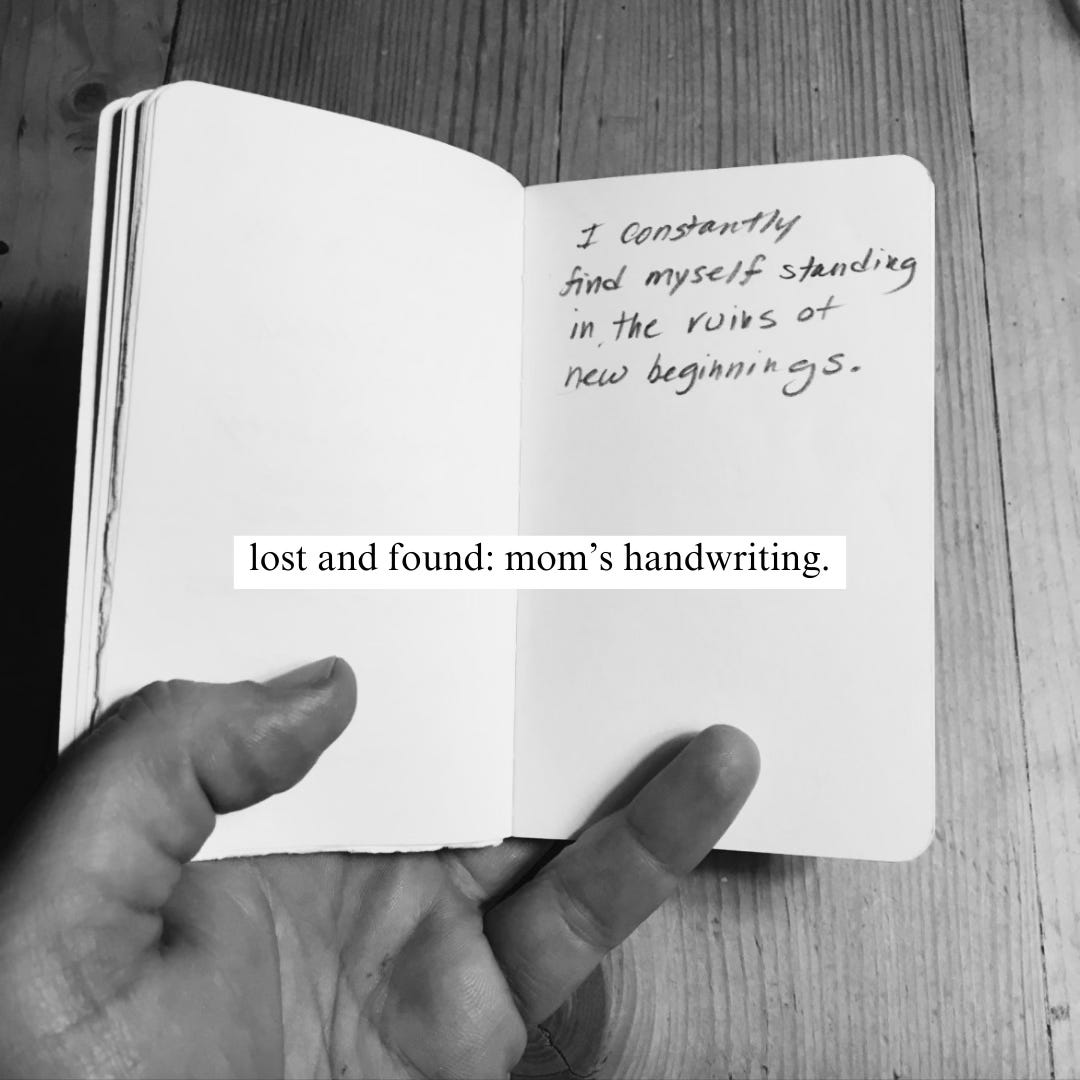 I constantly
find myself standing
in the ruins of
new beginnings.
lost and found: mom’s handwriting.